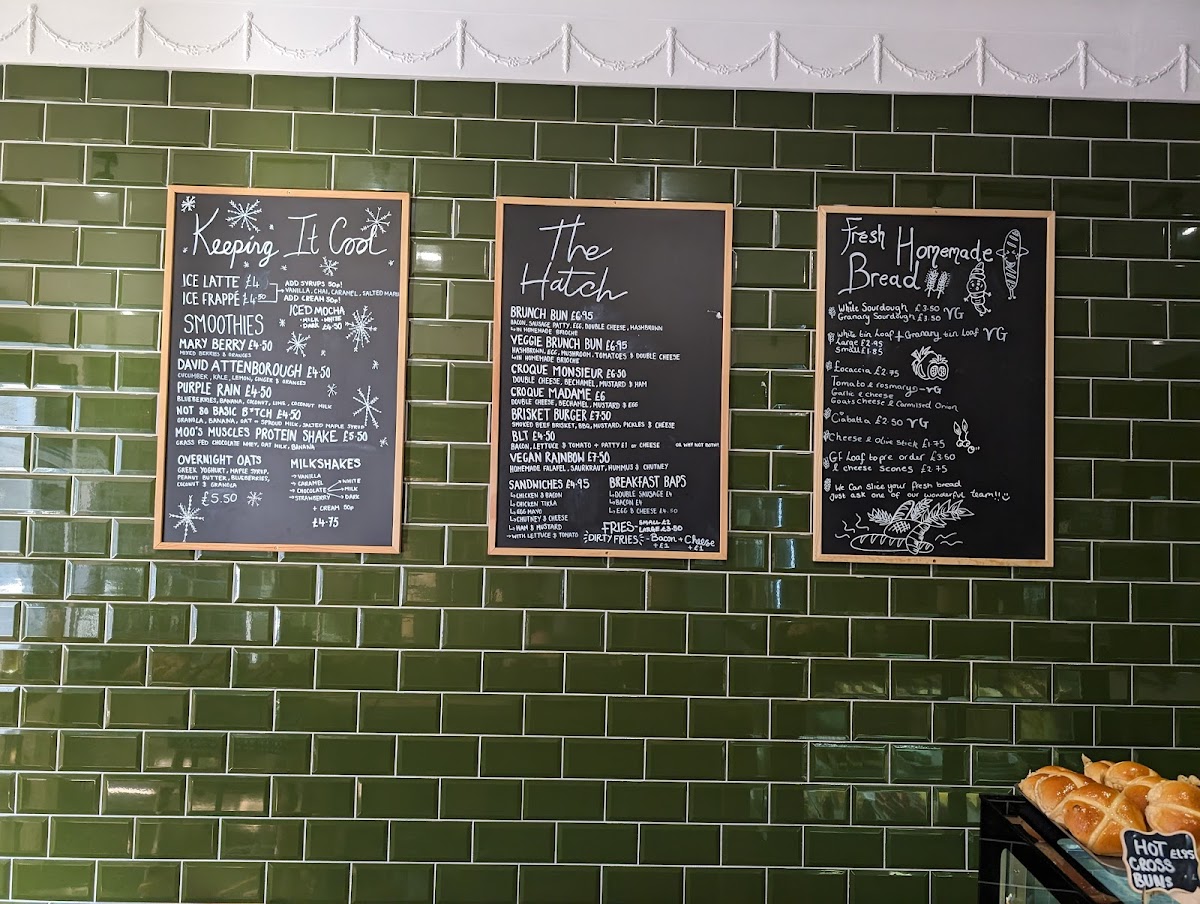 Keeping It Cool
ICE LATTE £4
ICE FRAPPÉ £4.50
ADD SYRUPS 50p!
VANILLA, CHAI, CARAMEL, SALTED MAPLE
ADD CREAM 50p!
ICED MOCHA
• MILK • WHITE
• DARK £4.50
SMOOTHIES
MARY BERRY £4.50
MIXED BERRIES & ORANGES
DAVID ATTENBOROUGH £4.50
CUCUMBER, KALE, LEMON, GINGER & ORANGES
PURPLE RAIN £4.50
BLUEBERRIES, BANANA, COCONUT, LIME, COCONUT MILK
NOT SO BASIC B*TCH £4.50
GRANOLA, BANANA, OAT - SPROUD MILK, SALTED MAPLE SYRUP
MOO'S MUSCLES PROTEIN SHAKE £5.50
GRASS FED CHOCOLATE WHEY, OAT MILK, BANANA
OVERNIGHT OATS
GREEK YOGHURT, MAPLE SYRUP,
PEANUT BUTTER, BLUEBERRIES,
COCONUT & GRANOLA
£5.50
MILKSHAKES
→ VANILLA
→ CARAMEL
→ CHOCOLATE
→ STRAWBERRY
WHITE
MILK
DARK
+ CREAM 50p
£4.75
The
Hatch
BRUNCH BUN £6.95
BACON, SAUSAGE PATTY, EGG, DOUBLE CHEESE, HASHBROWN
WITH HOMEMADE BRIOCHE
VEGGIE BRUNCH BUN £6.95
HASHBROWN, EGG, MUSHROOM, TOMATOES & DOUBLE CHEESE
WITH HOMEMADE BRIOCHE
CROQUE MONSIEUR £6.50
DOUBLE CHEESE, BECHAMEL, MUSTARD & HAM
CROQUE MADAME £6
DOUBLE CHEESE, BECHAMEL, MUSTARD & EGG
BRISKET BURGER £7.50
SMOKED BEEF BRISKET, BBQ, MUSTARD, PICKLES & CHEESE
BLT £4.50
BACON, LETTUCE & TOMATO + PATTY £1 or CHEESE OR WHY NOT BOTH!
VEGAN RAINBOW £7.50
HOMEMADE FALAFEL, SAURKRAUT, HUMMUS & CHUTNEY
SANDWICHES £4.95
CHICKEN & BACON
CHICKEN TIKKA
EGG MAYO
CHUTNEY & CHEESE
HAM & MUSTARD
→ WITH LETTUCE & TOMATO
BREAKFAST BAPS
DOUBLE SAUSAGE £4
BACON £4
EGG & CHEESE £4.50
FRIES - SMALL £2
LARGE £3.50
DIRTY FRIES - Bacon + Cheese
+£1 +£1
Fresh Homemade
Bread
White Sourdough £3.50
Granary Sourdough £3.50 VG
White tin Loaf + Granary tin Loaf VG
Large £2.95
Small £1.85
Focaccia £2.75
Tomato & rosmary - VG
Garlic & cheese
Goats Cheese & Carmilised Onion
Ciabatta £2.50 VG
Cheese & Olive Stick £1.75
GF Loaf to pre order £3.60
& cheese scones £2.75
We Can Slice your fresh bread
Just ask one of our wonderful team!!
HOT £1.95
CROSS
BUNS